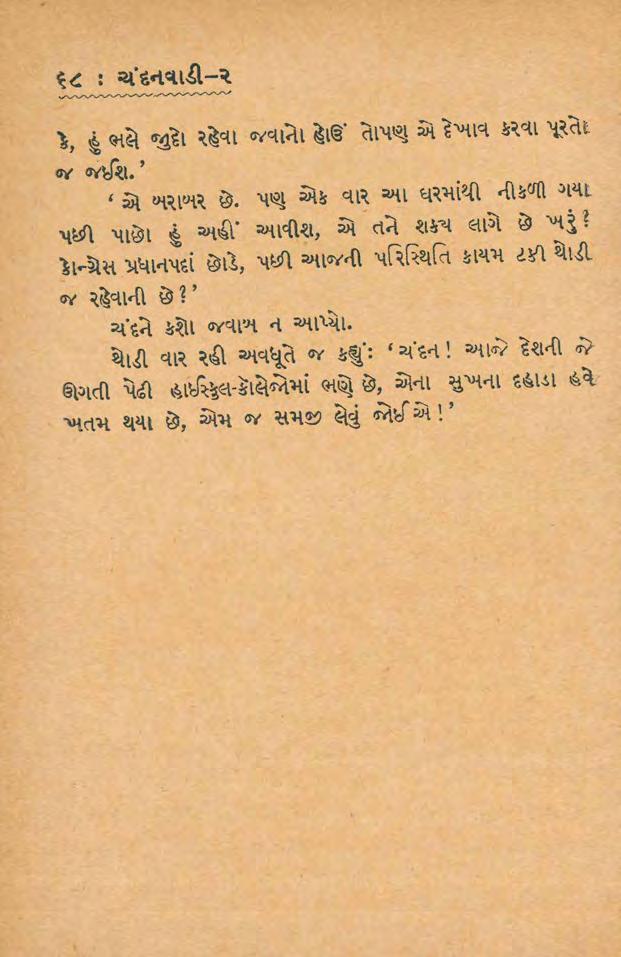 ૬૮ : ચંદનવાડી–૨
કે, હું ભલે જુદો રહેવા જવાનો હોઉં તોપણ એ દેખાવ કરવા પૂરતો
જ જઈશ.’
‘ એ બરાબર છે. પણ એક વાર આ ઘરમાંથી નીકળી ગયા
પછી પાછો હું અહીં આવીશ, એ તને શક્ય લાગે છે ખરું ?
કોન્ગ્રેસ પ્રધાનપદાં છોડે, પછી આજની પરિસ્થિતિ કાયમ ટકી થોડી
જ રહેવાની છે ?’
ચંદને કશો જવાબ ન આપ્યો.
થોડી વાર રહી અવધૂતે જ કહ્યું: ‘ ચંદન ! આજે દેશની જે
ઊગતી પેઢી હાઈસ્કુલ-કૉલેજોમાં ભણે છે, એના સુખના દહાડા હવે
ખતમ થયા છે, એમ જ સમજી લેવું જોઈએ !’